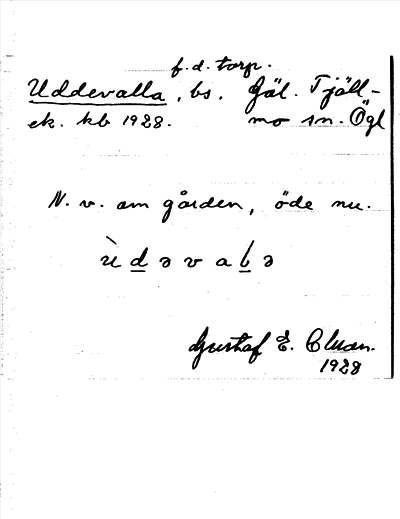 f.d. torp.
Uddevalla, bs. Gäl. Tjäll-
ek. kb 1928. mo sn. Ögl
N. v. om gården, öde nu.
ù d ə v a b ə
Gustaf E. Cluan.
1928